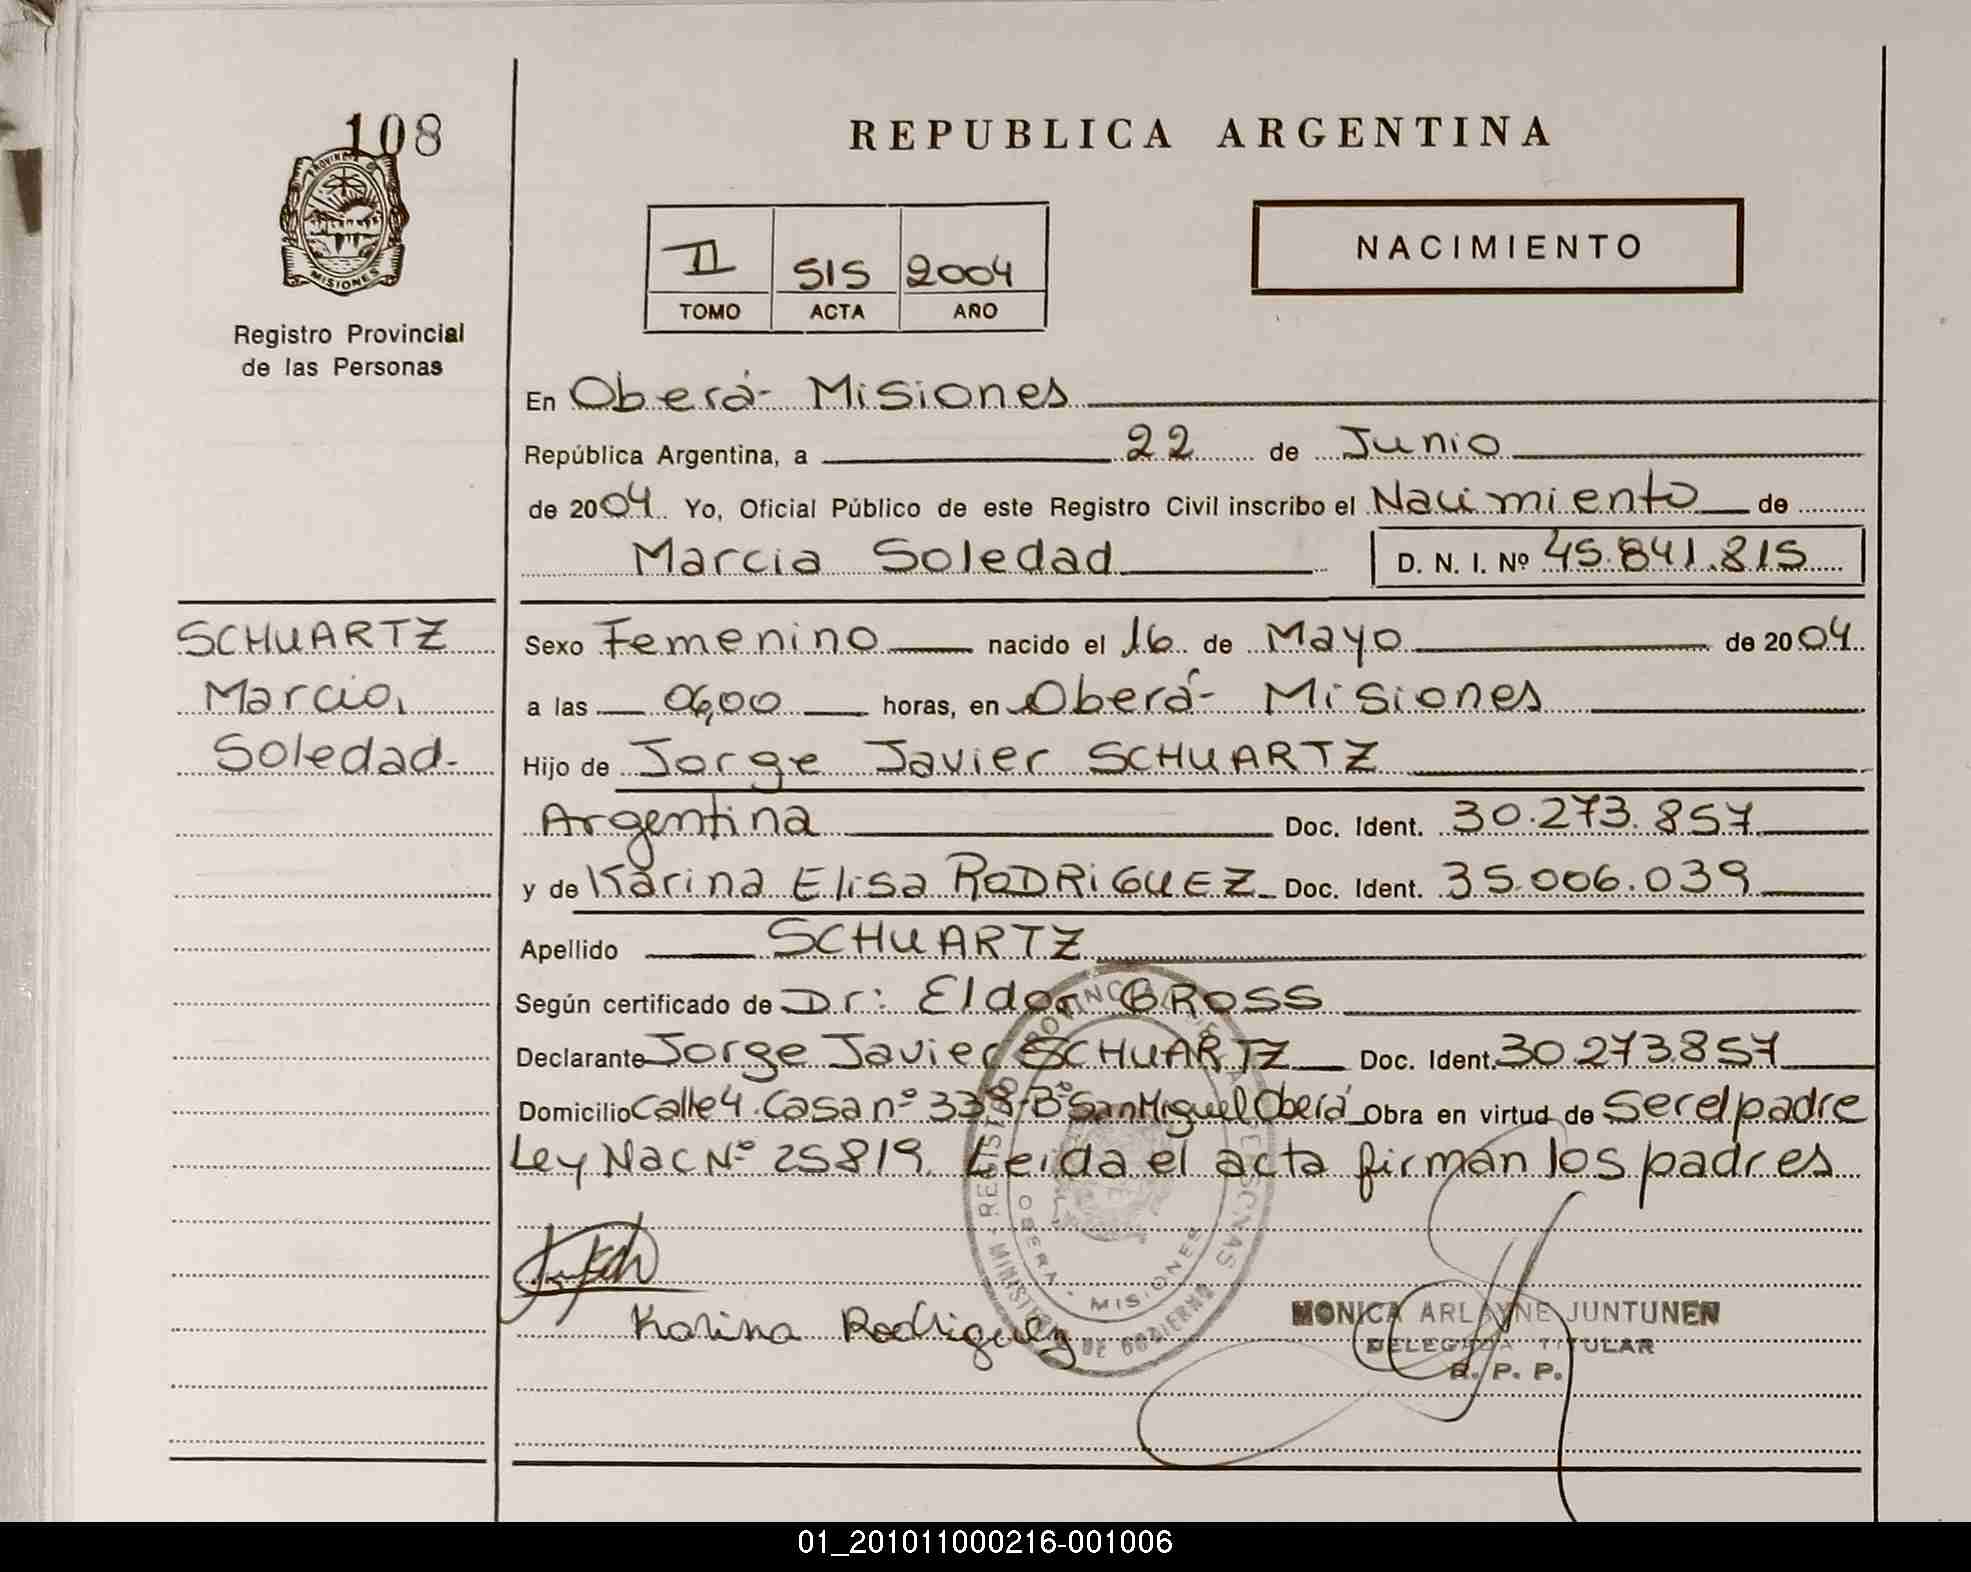 108
PROVINCIA DE
MISIONES
Registro Provincial
de las Personas
REPUBLICA ARGENTINA
II 515 2004
TOMO ACTA AÑO
NACIMIENTO
En Oberá- Misiones
República Argentina, a 22 de Junio
de 2004 Yo, Oficial Público de este Registro Civil inscribo el Nacimiento de
Marcia Soledad D. N. I. Nº 45.841.815
SCHUARTZ
Marcia,
Soledad-
Sexo Femenino nacido el 16 de Mayo de 2004
a las 06,00 horas, en Oberá- Misiones
Hijo de Jorge Javier SCHUARTZ
Argentina Doc. Ident. 30.273.857
y de Karina Elisa RODRIGUEZ Doc. Ident. 35.006.039
Apellido SCHUARTZ
Según certificado de Dr: Eldor BROSS
Declarante Jorge Javier SCHUARTZ Doc. Ident. 30.273.857
Domicilio Calle 4. Casa nº 338-Bº San Miguel Oberá Obra en virtud de Ser el padre
Ley Nac Nº 25819. Leida el acta firman los padres
OBERA - MISIONES
MINISTERIO DE GOBIERNO
Karina Rodriguez
MONICA ARLAYNE JUNTUNEN
DELEGADA TITULAR
R. P. P.
01_201011000216-001006